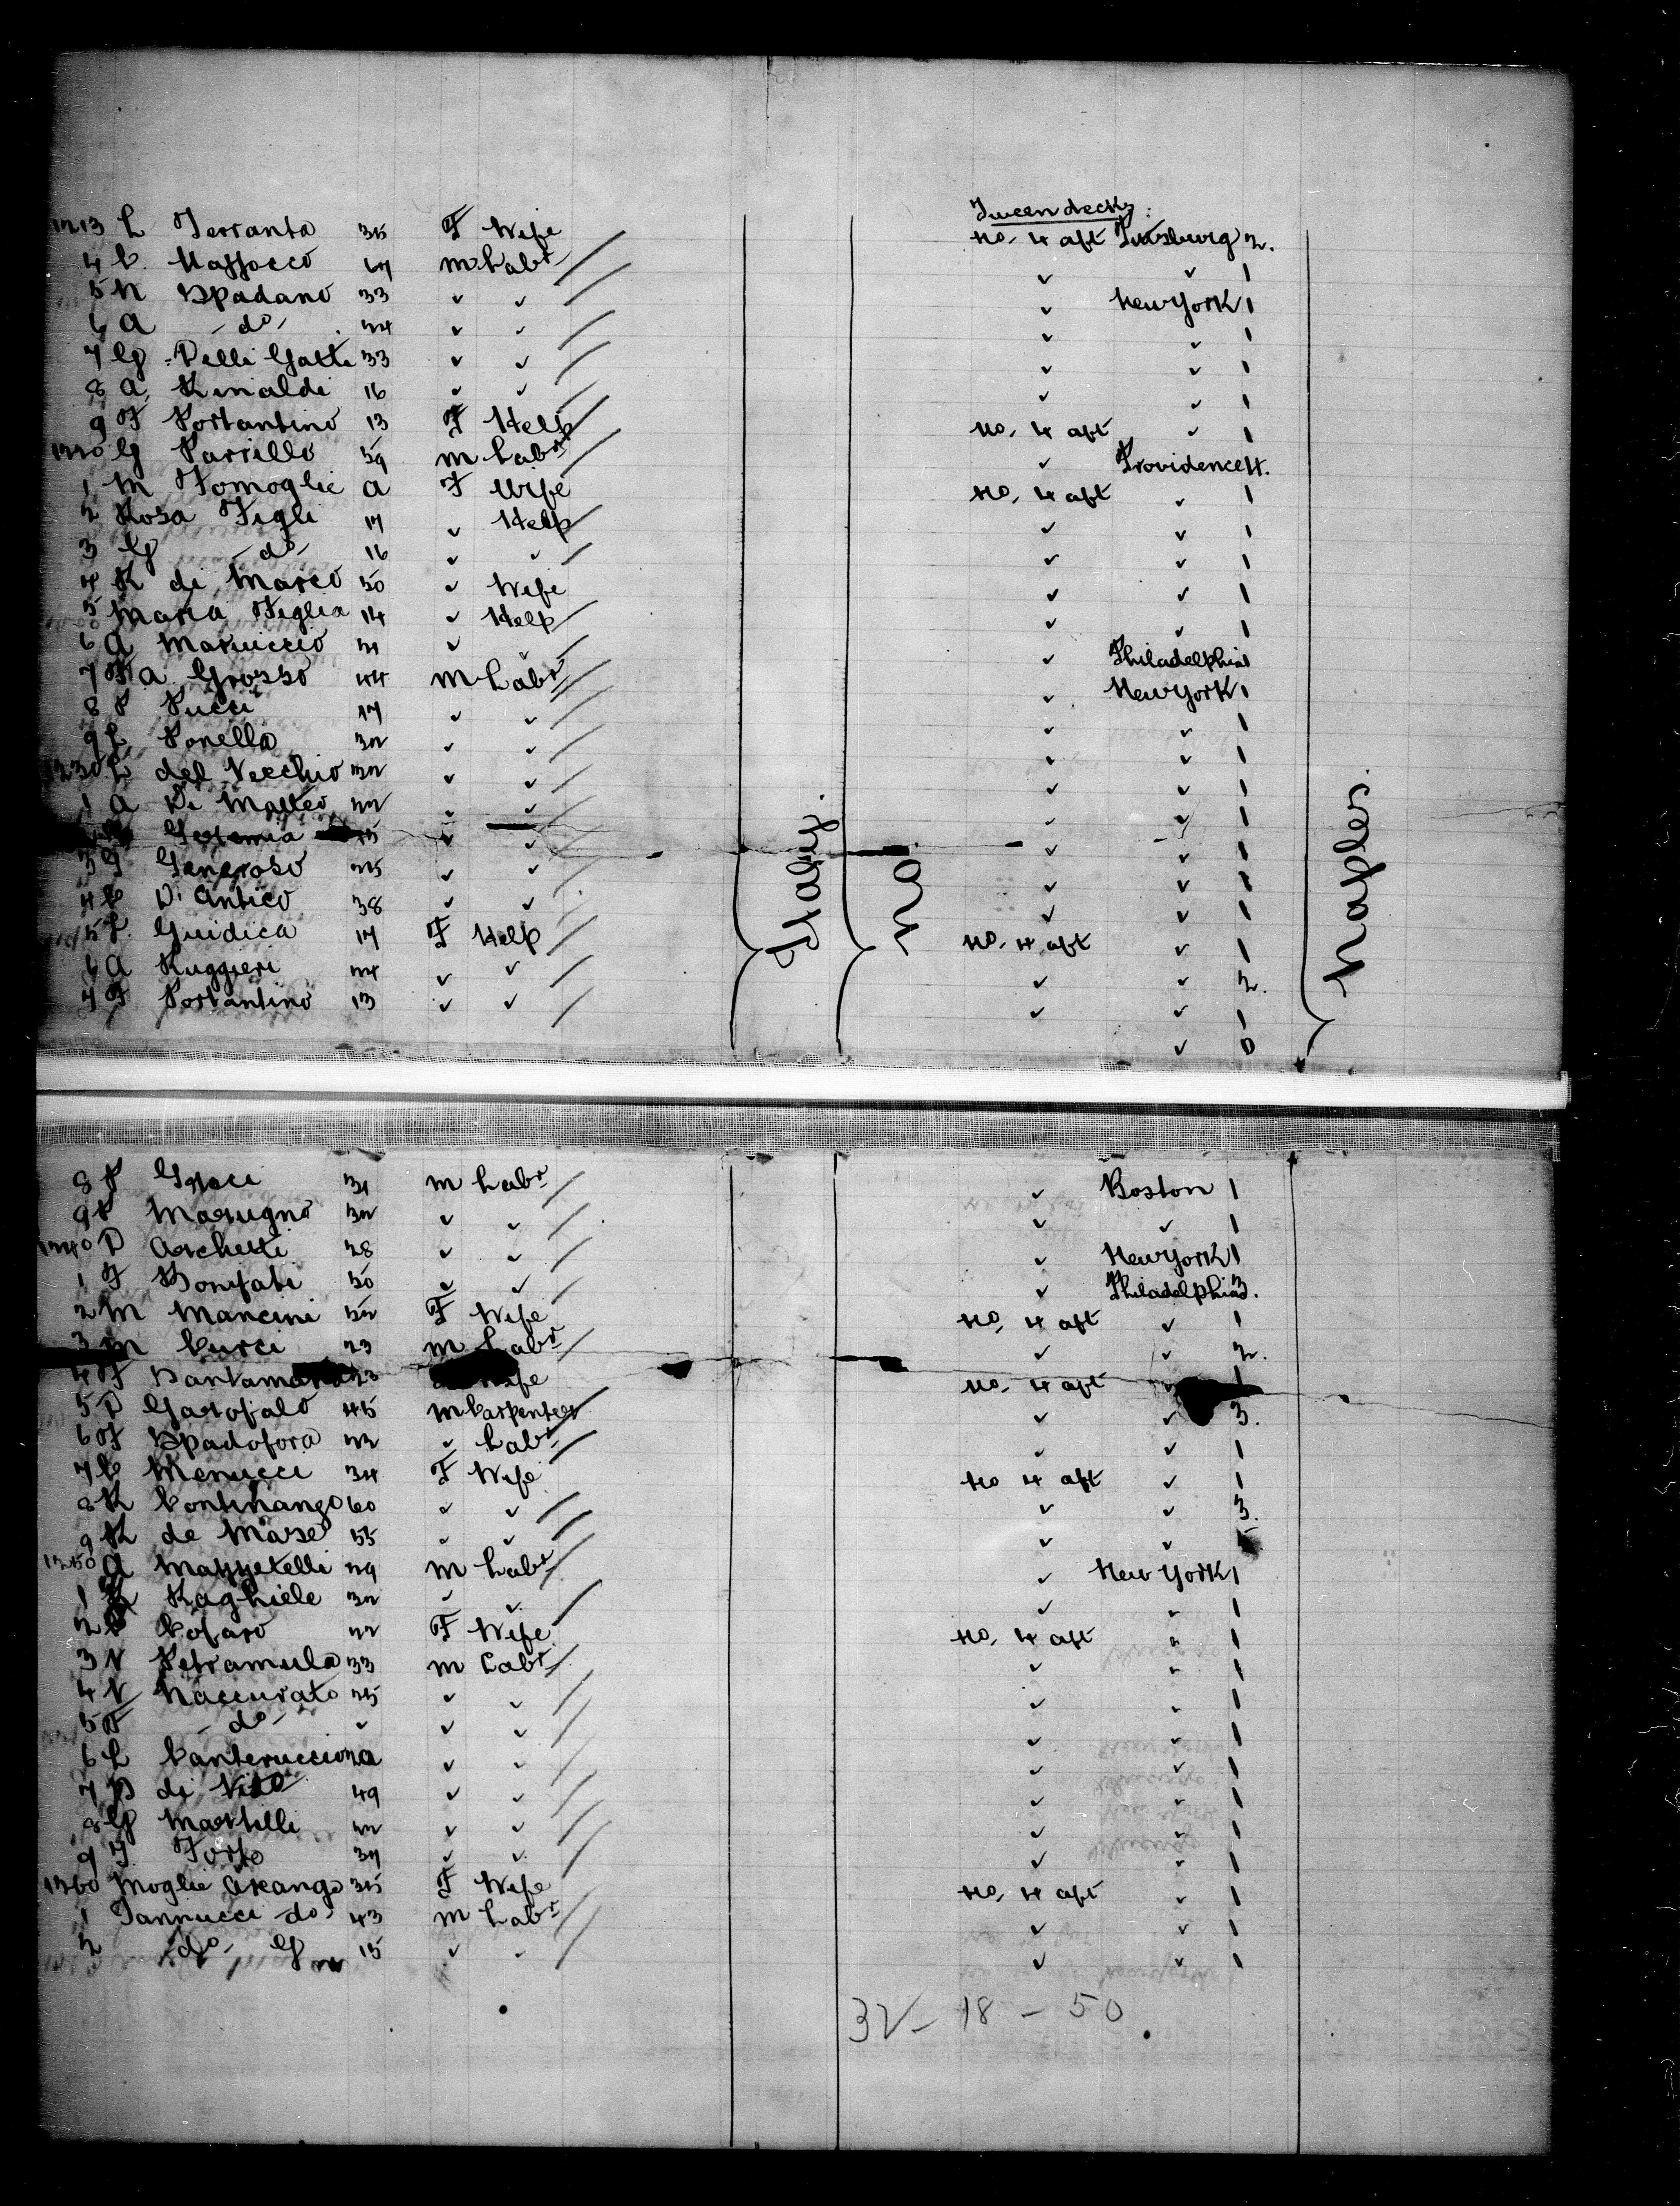 Tween decks
1213 L Terranta 35 F Wife No. 4 aft 2.
4 67 M Labr ✓ ✓ 1
5 N Spadano 33 ✓ ✓ ✓ New York 1
6 A -do- 24 ✓ ✓ ✓ ✓ 1
7 G Delli Gatti 33 ✓ ✓ ✓ ✓ 1
8 A Rinaldi 16 ✓ ✓ ✓ ✓ 1
9 F Portantino 13 F Help No. 4 aft ✓ 1
1220 G Parrillo 59 M Labr ✓ Providence 4.
1 M Fomoglie a F Wife No. 4 aft ✓ 1
2 Rosa Figli 17 ✓ Help ✓ ✓ 1
3 G -do- 16 ✓ ✓ ✓ ✓ 1
4 R di Marco 50 ✓ Wife ✓ ✓ 1
5 Maria Figlia 14 ✓ Help ✓ ✓ 1
6 A Maruccio 21 ✓ ✓ ✓ Philadelphia 1
7 F.a Grosso 44 M Labr ✓ New York 1
8 P Pucci 17 ✓ ✓ ✓ ✓ 1
9 L Ponella 32 ✓ ✓ ✓ ✓ 1
1230 L del Vecchio 32 ✓ ✓ ✓ ✓ 1
1 A Di Matteo 22 ✓ ✓ ✓ ✓ 1
✓ ✓ ✓ ✓ 1
3 G Generoso 25 ✓ ✓ ✓ ✓ 1
4 P D'Antico 38 ✓ ✓ ✓ ✓ 1
5 L. Guidica 17 F Help No. 4 aft ✓ 1
6 A Ruggieri 24 ✓ ✓ ✓ ✓ 2.
7 F Portantino 13 ✓ ✓ ✓ ✓ 1
✓ 0
Italy.
No.
Naples.
8 P Graci 31 M Labr ✓ Boston 1
9 P Marugno 32 ✓ ✓ ✓ ✓ 1
1240 D Archetti 28 ✓ ✓ ✓ New York 1
1 F Bonifati 50 ✓ ✓ ✓ Philadelphia 3.
2 M Mancini 52 F Wife No. 4 aft ✓ 1
3 M Curci 23 M Labr ✓ ✓ 2.
4 F 23 Wife No. 4 aft ✓ 1
5 D Garofalo 45 M Carpenter ✓ ✓ 3.
6 F Spadofora 22 ✓ Labr ✓ ✓ 1
7 C Menucci 34 F Wife No 4 aft ✓ 1
8 R Continanzo 60 ✓ ✓ ✓ ✓ 3.
9 R de Marse 55 ✓ ✓ ✓ ✓
1250 A Mazzetelli 29 M Labr ✓ New York 1
1 R Raghiele 32 ✓ ✓ ✓ " 1
2 Cofaro 22 F Wife No. 4 aft " 1
3 V Petramula 33 M Labr ✓ " 1
4 V Naccurato 25 ✓ ✓ ✓ " 1
5 F -do- ✓ ✓ ✓ ✓ " 1
6 L ✓ ✓ ✓ ✓ 1
7 D di Vito 49 ✓ ✓ ✓ ✓ 1
8 G Martelli 22 ✓ ✓ ✓ ✓ 1
9 F. 37 ✓ ✓ ✓ ✓ 1
1260 Moglie Arcango 35 F Wife No. 4 aft ✓ 1
1 Iannucci -do- 43 M Labr ✓ ✓ 1
2 -do- G 15 ✓ ✓ ✓ ✓ 1
32 - 18 - 50